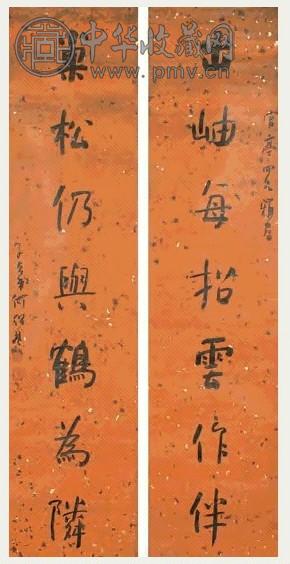 中华收藏网
www.pmv.cn
出岫每招雲作伴
巢松仍與鶴為隣
子貞弟何紹基